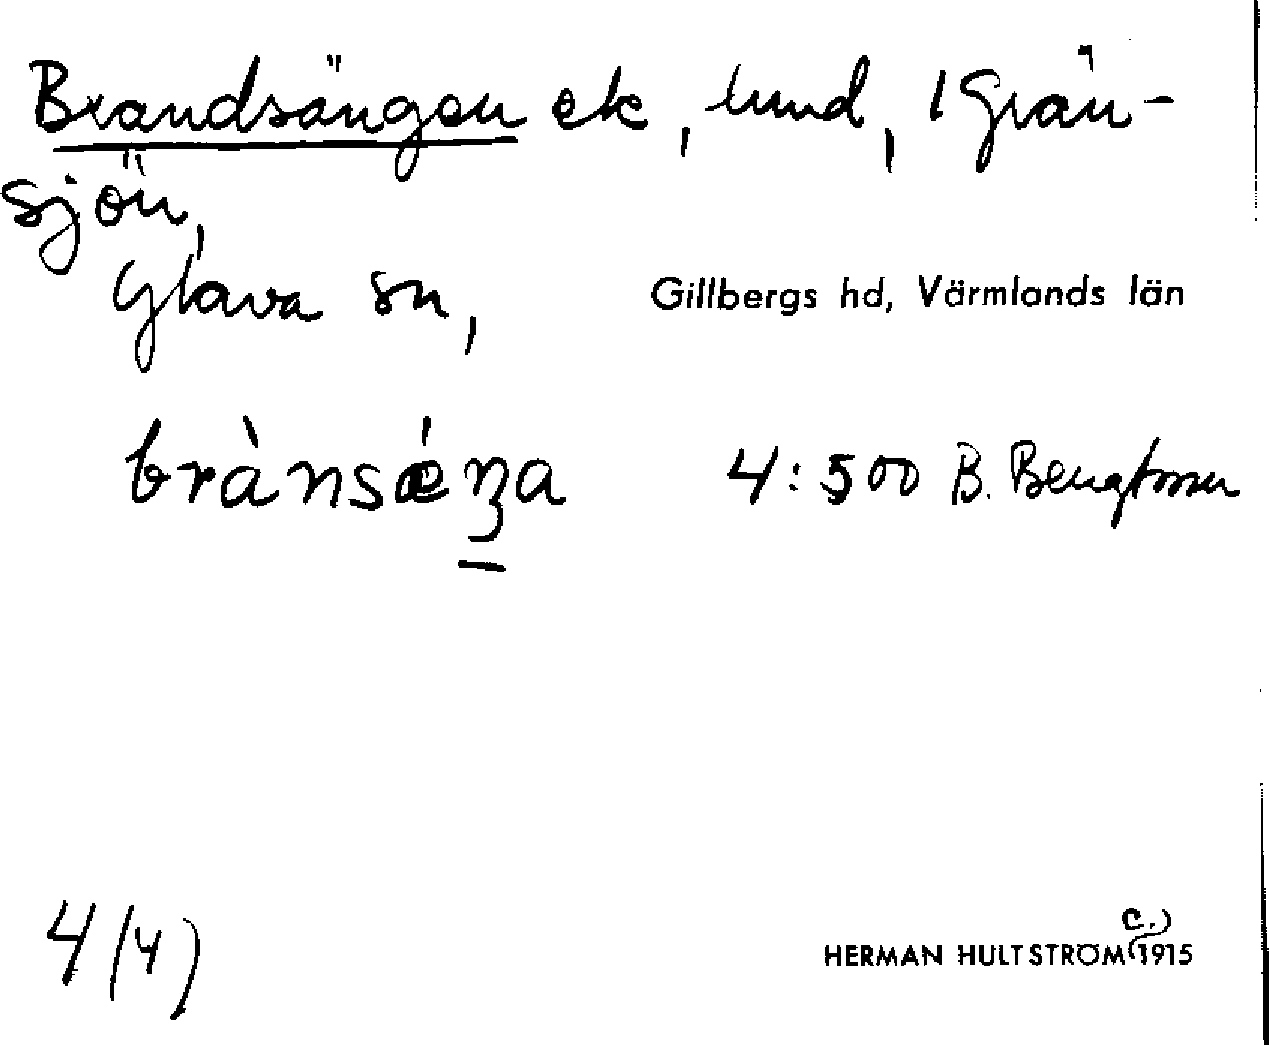 Brandsängen ek, lund, 1 Grän-
sjön,
Glava sn, Gillbergs hd, Värmlands län
brànsǽŋa 4:500 B. Bengtsson
4(4) HERMAN HULTSTRÖM (c.) 1915